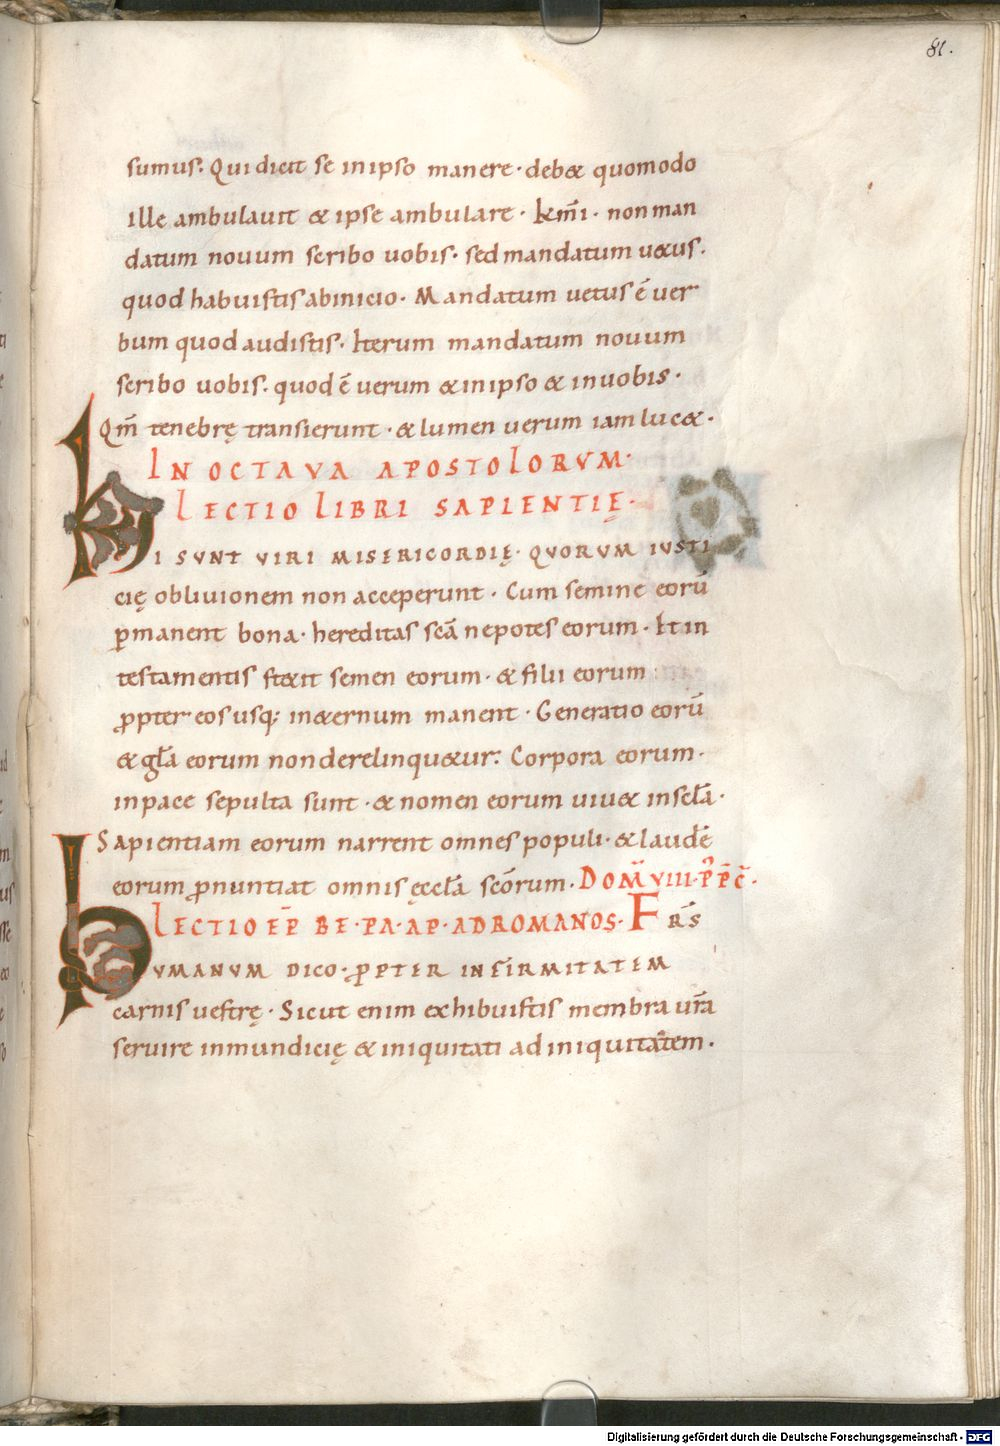 81.
sumus. Qui dicit se in ipso manere · deb& quomodo
ille ambulauit & ipse ambulare · kmī · non man
datum nouum scribo uobis · sed mandatum u&us ·
quod habuistis ab inicio · Mandatum uetus ē uer
bum quod audistis · Iterum mandatum nouum
scribo uobis · quod ē uerum & in ipso & in uobis ·
Qm̄ tenebrę transierunt · & lumen uerum iam luc& ·
IN OCTAVA APOSTOLORVM ·
LECTIO LIBRI SAPIENTIĘ ·
HI SVNT VIRI MISERICORDIĘ · QVORVM IVSTI
cię obliuionem non acceperunt · Cum semine eorū
ꝑmanent bona · hereditas scā nepotes eorum · Et in
testamentis st&it semen eorum · & filii eorum
ꝓpter eos usq; in &ernum manent · Generatio eorū
& gl̄a eorum non derelinqu&ur · Corpora eorum ·
in pace sepulta sunt · & nomen eorum uiu& in scl̄a ·
Sapientiam eorum narrent omnes populi · & laudē
eorum ꝓnuntiat omnis ęccl̄a scōrum · DOM̄ VIII · P̄ P̄C̄ ·
LECTIO EP̄ BE · PA · AP · AD ROMANOS · FRS̄
HVMANVM DICO · PꝓPTER INFIRMITATEM
carnis uestrę · Sicut enim exhibuistis membra ur̄a
seruire inmundicię & iniquitati ad iniquitatem ·
Digitalisierung gefördert durch die Deutsche Forschungsgemeinschaft - DFG